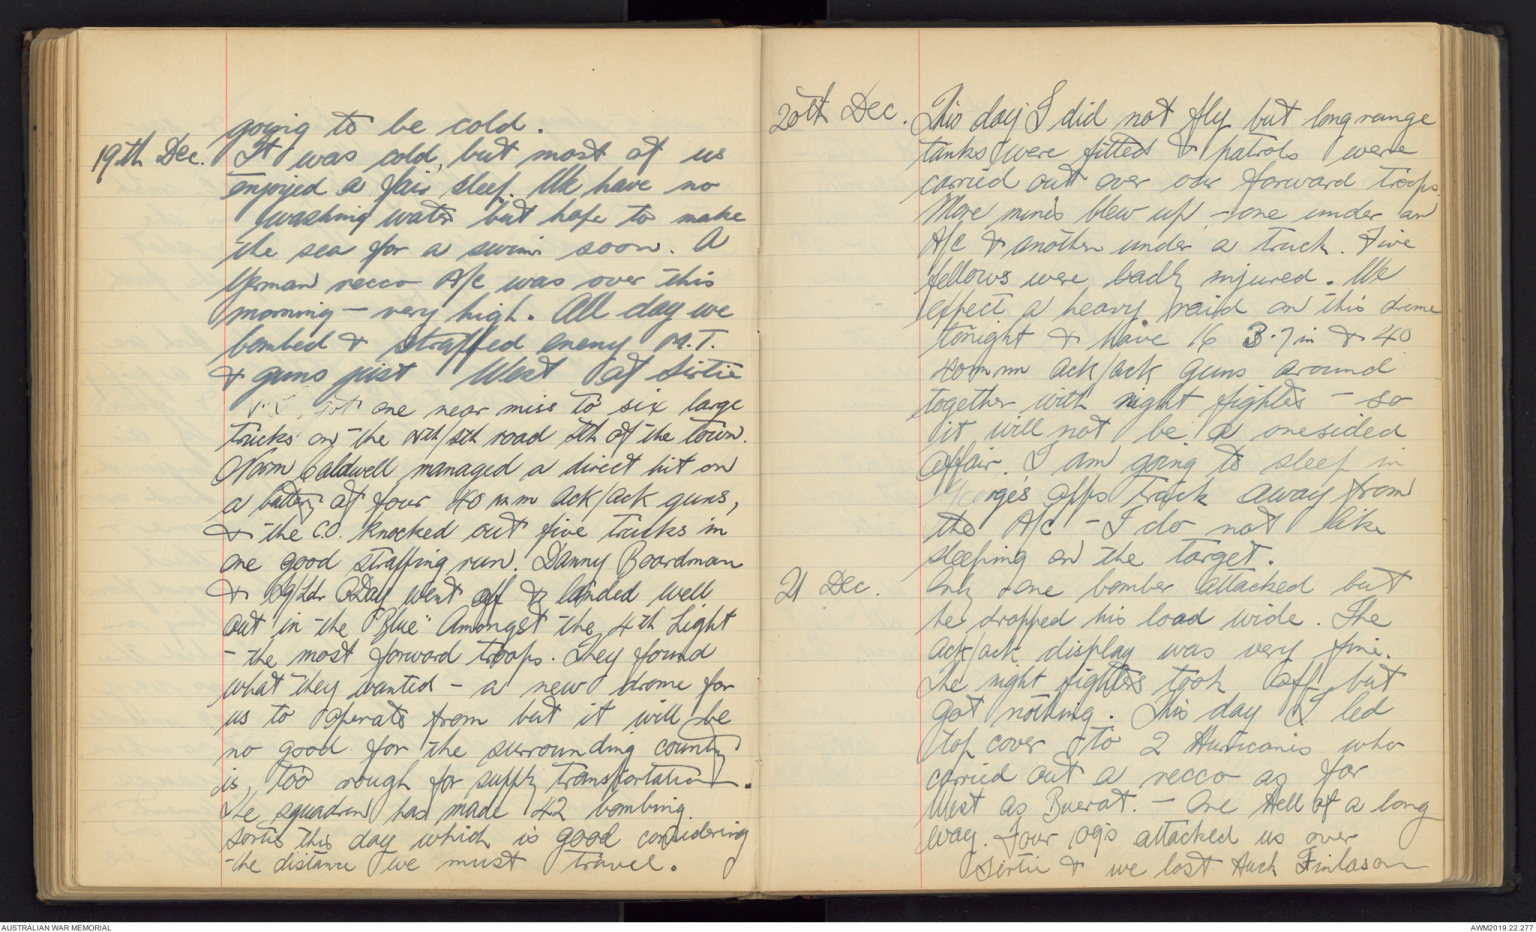 going to be cold.
19th Dec. It was cold, but most of us
enjoyed a fair sleep. We have no
washing water but hope to make
the sea for a swim soon. A
German recco A/C was over this
morning - very high. All day we
bombed & straffed enemy M.T.
& guns just West of Sirtie
got one near miss to six large
trucks on the Nth/Sth road Sth of the town.
Norm Caldwell managed a direct hit on
a battery of four 40 mm ack/ack guns,
& the C.O. knocked out five trucks in
one good straffing run. Danny Boardman
& Sq/Ldr ODay went off & landed well
out in the "Blue" amongst the 4th Light
- the most forward troops. They found
what they wanted - a new drome for
us to operate from but it will be
no good for the surrounding country
is, too rough for supply transportation.
The squadron has made 42 bombing
sorties this day which is good considering
the distance we must travel.
20th Dec. This day I did not fly but long range
tanks were fitted & patrols were
carried out over our forward troops.
More mines blew up - one under an
A/C & another under a truck. Five
fellows were badly injured. We
expect a heavy raid on this drome
tonight & have 16 3.7 in & 40
40 m m ack/ack guns around
together with night fighters - so
it will not be a onesided
affair. I am going to sleep in
George's opps truck away from
the A/C - I do not like
sleeping on the target.
21 Dec. Only one bomber attacked but
he dropped his load wide. The
ack/ack display was very fine.
The night fighters took off but
got nothing. This day I led
top cover to 2 Hurricanes who
carried out a recco as far
West as Buerat. - One Hell of a long
way. Four 109's attacked us over
Sirtie & we lost Huck Finlason
AUSTRALIAN WAR MEMORIAL
AWM2019.22.277